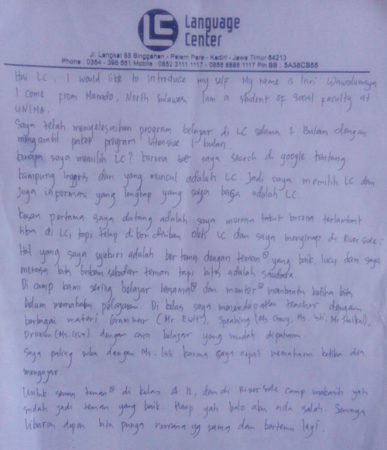 LC Language
Center
Jl. Langkat 88 Singgahan - Pelem Pare - Kediri - Jawa Timur 64213
Phone : 0354 - 396 551 Mobile : 0852 3111 1117 - 0856 1117 Pin BB :
Hai LC, I would like to introduce my self. My name is Inri
I come from Manado, North Sulawesi I am a student of Social Faculty at
UNIMA.
Saya telah menyelesaikan program belajar di LC selama 1 Bulan dengan
mengambil paket program intensive 1 bulan.
kenapa saya memilih LC? karena saya search di google tentang
kampung Inggris dan yang muncul adalah LC Jadi saya memilih LC dan
Juga informasi yang lengkap yang saya baca adalah LC.
Kesan pertama saya datang adalah saya merasa takut karena terlambat
tiba di LC, tapi tetap di oleh LC dan saya menginap di River Side.
Hal yang saya adalah bertemu dengan teman² yang baik, lucu dan saya
merasa kita bukan sekedar teman tapi kita adalah saudara.
Di camp kami sering belajar bersama² dan mentor membantu ketika kita
belum memahami pelajaran. Di kelas saya mendapatkan teacher dengan
berbagai materi Grammer (Mr ), Speaking (Ms , Ms. , Mr ),
(Ms. ) dengan cara belajar yang mudah dipahami
Saya paling suka dengan Ms. karena saya cepat memahami ketika dia
mengajar.
Untuk semua teman² di kelas dan di River Side camp makasih yah
sudah jadi teman yang baik. Maaf yah kalo aku ada salah. Semoga
liburan depan kita punya rencana yg sama dan bertemu lagi.